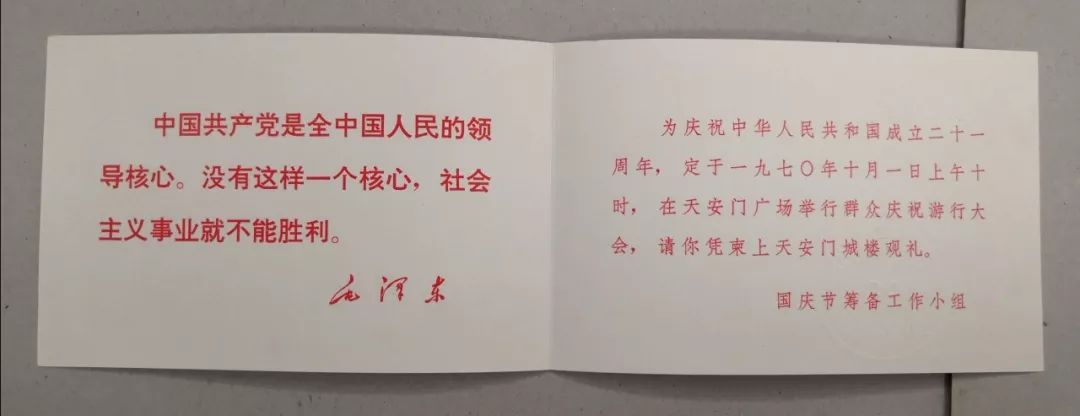 中国共产党是全中国人民的领
导核心。没有这样一个核心，社会
主义事业就不能胜利。
毛泽东
为庆祝中华人民共和国成立二十一
周年，定于一九七〇年十月一日上午十
时，在天安门广场举行群众庆祝游行大
会，请你凭柬上天安门城楼观礼。
国庆节筹备工作小组